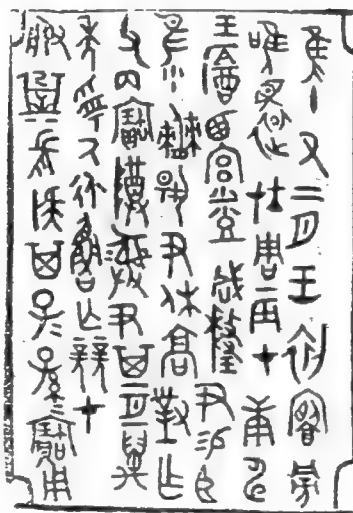 隹十又二月王初旁
唯還在周辰才庚申
王酓西宮登咸釐尹易臣
隹小揚尹休高對乍
父丙寶尊彝尹其亘萬
年受氒永魯亡競才
服其子₌孫₌寶用